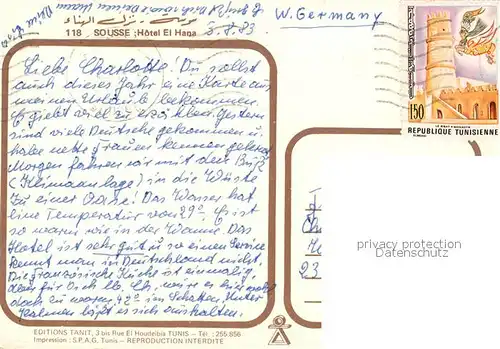 W. Germany
سوسة - نزل الهناء
118 SOUSSE : Hôtel El Hana
5.8.83
Liebe Charlotte! Du sollst
auch dieses Jahr eine Karte aus
meinen Urlaub bekommen.
Es giebt viel zu erzählen. Gestern
sind viele Deutsche gekommen u.
habe nette Frauen kennen gelernt.
Morgen fahren wir mit den Buß
(Klimaanlage) in die Wüste
zu einer Oase! Das Wasser hat
eine Temperatur von 29°. Es ist
so warm wie in der Wanne. Das
Hotel ist sehr gut u. so einen Service
kennt man in Deutschland nicht.
Die französische Küche ist einmalig,
42° im Schatten. Unter
Palmen läßt es sich aushalten.
EDITIONS TANIT, 3 bis Rue El Houdeibia TUNIS - Tél : 255.856
Impression : S.P.A.G. Tunis - REPRODUCTION INTERDITE
150
REPUBLIQUE TUNISIENNE
23
privacy protection
Datenschutz